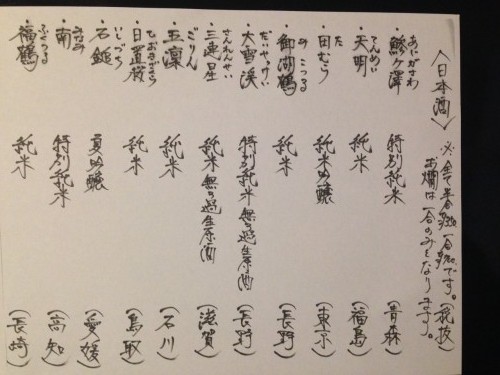 〈日本酒〉
※全て半合 一合 です。(税抜)
お燗は一合のみとなります。
あじがさわ
・鰺ヶ澤 特別純米 (青森)
てんめい
・天明 純米 (福島)
た
・田むら 純米吟醸 (東京)
みこつる
・御湖鶴 純米 (長野)
だいせっけい
・大雪渓 特別純米無ろ過生原酒 (長野)
さんれんせい
・三連星 純米無ろ過生原酒 (滋賀)
ごりん
・五凜 純米 (石川)
ひおきざくら
・日置桜 純米 (鳥取)
いしづち
・石鎚 夏吟醸 (愛媛)
みなみ
・南 特別純米 (高知)
ふくつる
・福鶴 純米 (長崎)